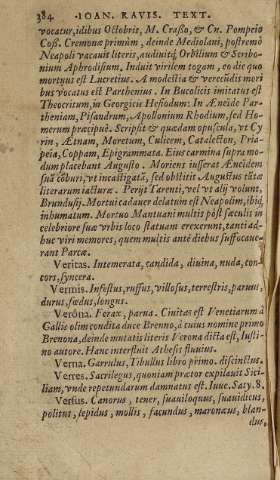 384 IOAN. RAVIS. TEXT.
vocatur, idibus Octobris, M. Crasso, & Cn. Pompeio
Coss. Cremonæ primùm, deinde Mediolani, postremò
Neapoli vacauit literis, audiuitq; Orbilium & Scribo-
nium Aphrodisium. Induit virilem togam, eo die quo
mortuus est Lucretius. A modestia & verecūdis mori
bus vocatus est Parthenius. In Bucolicis imitatus est
Theocritum, in Georgicis Hesiodum: In Æneide Par-
theniam, Pisandrum, Apollonium Rhodium, sed Ho-
merum præcipuè. Scripsit & quædam opuscula, vt Cy
rin, Ætnam, Moretum, Culicem, Catalecton, Pria-
peia, Coppam, Epigrammata. Eius carmina supra mo-
dum placebant Augusto. Moriens iusserat Æneidem
suā cōburi, vt incastigatā, sed obstitit Augustus tātæ
literarum iacturæ. Perijt Tarenti, vel vt alij volunt,
Brundusij. Mortui cadauer delatum est Neapolim, ibiq;
inhumatum. Mortuo Mantuani multis pòst sæculis in
celebriore suæ vrbis loco statuam erexerunt, tantiad-
huc viri memores, quem multis antè diebus suffocaue-
rant Parcæ.
Veritas. Intemerata, candida, diuina, nuda, con-
cors, syncera.
Vermis. Infestus, ruffus, villosus, terrestris, paruus,
durus, fœdus, longus.
Veróna. Ferax, parua. Ciuitas est Venetiarum à
Gallis olim condita duce Brenno, à cuius nomine primo
Brenona, deinde mutatis literis Verona dicta est, Iusti-
no autore. Hanc interfluit Athesis fluuius.
Verna. Garrulus, Tibullus libro primo. discinctus.
Verres. Sacrilegus, quoniam prætor expilauit Sici-
liam, vnde repetundarum damnatus est. Iuue. Saty. 8.
Versus. Canorus, tener, suauiloquus, suauidicus,
politus, lepidus, mollis, facundus, maronæus, blan-
dus,